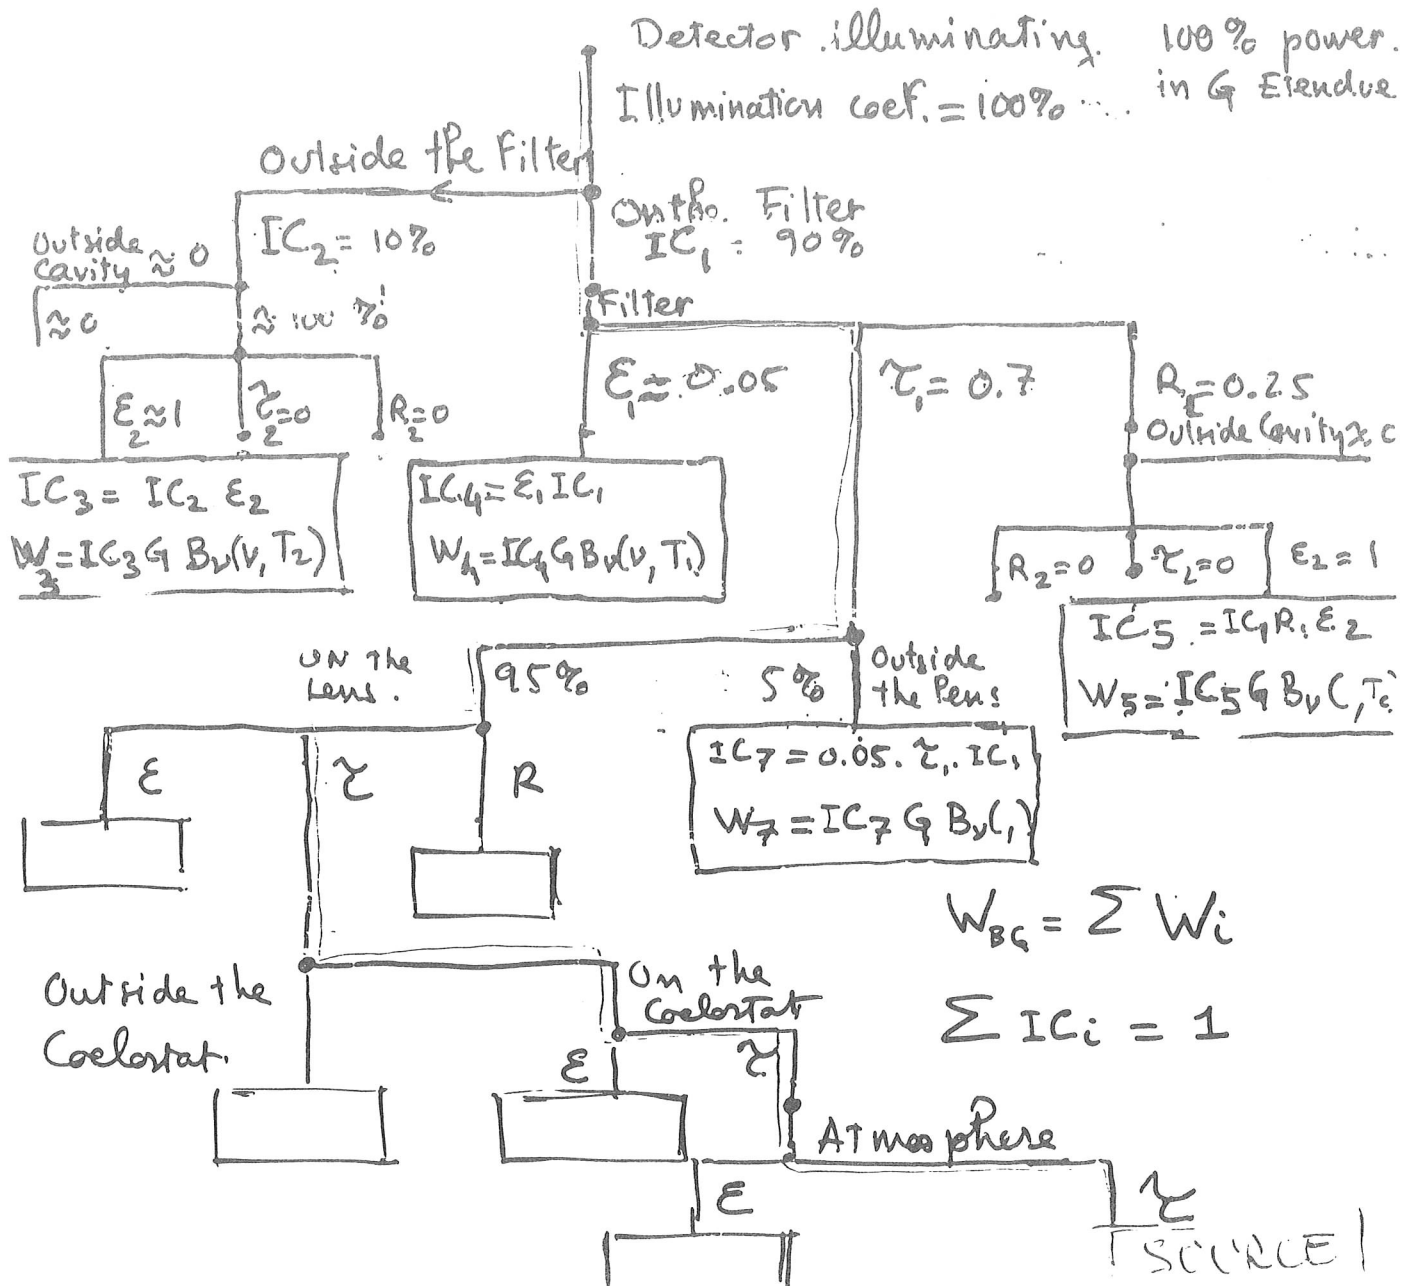 Detector illuminating. 100% power.
in G Etendue
Illumination coef. = 100%
Outside the Filter
Ontho. Filter
IC₁ = 90%
IC₂ = 10%
Outside
Cavity ≈ 0
≈ 0
≈ 100 %
Filter
ε₁ ≈ 0.05
τ₁ = 0.7
R₁ = 0.25
Outside Cavity ≈
ε₂ ≈ 1
τ₂ = 0
R₂ = 0
IC₃ = IC₂ ε₂
W₃ = IC₃ G Bν(ν, T₂)
IC₄ = ε₁ IC₁
W₄ = IC₄ G Bν(ν, T₁)
R₂ = 0
τ₂ = 0
ε₂ = 1
IC₅ = IC₁ R₁ ε₂
W₅ = IC₅ G Bν( , Tc
ON the
Lens.
95%
5%
Outside
the lens
IC₇ = 0.05. τ₁. IC₁
W₇ = IC₇ G Bν( , )
ε
τ
R
W_BG = Σ Wi
Σ ICi = 1
Outside the
Coelostat.
On the
Coelostat
ε
τ
Atmosphere
ε
τ
SOURCE